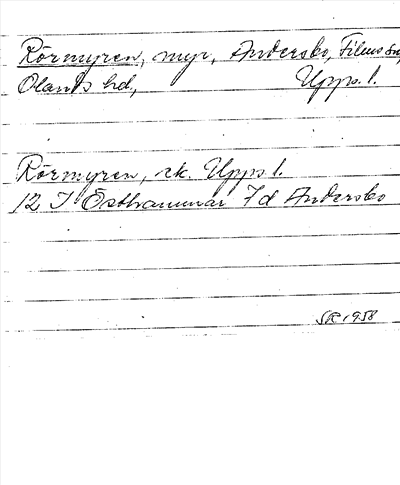 Rörmyren, myr, Andersbo, Films sn,
Olands hd, Upps. l.
Rörmyren, rk. Upps. l.
12 I Östhammar 7d Andersbo
SR 1958